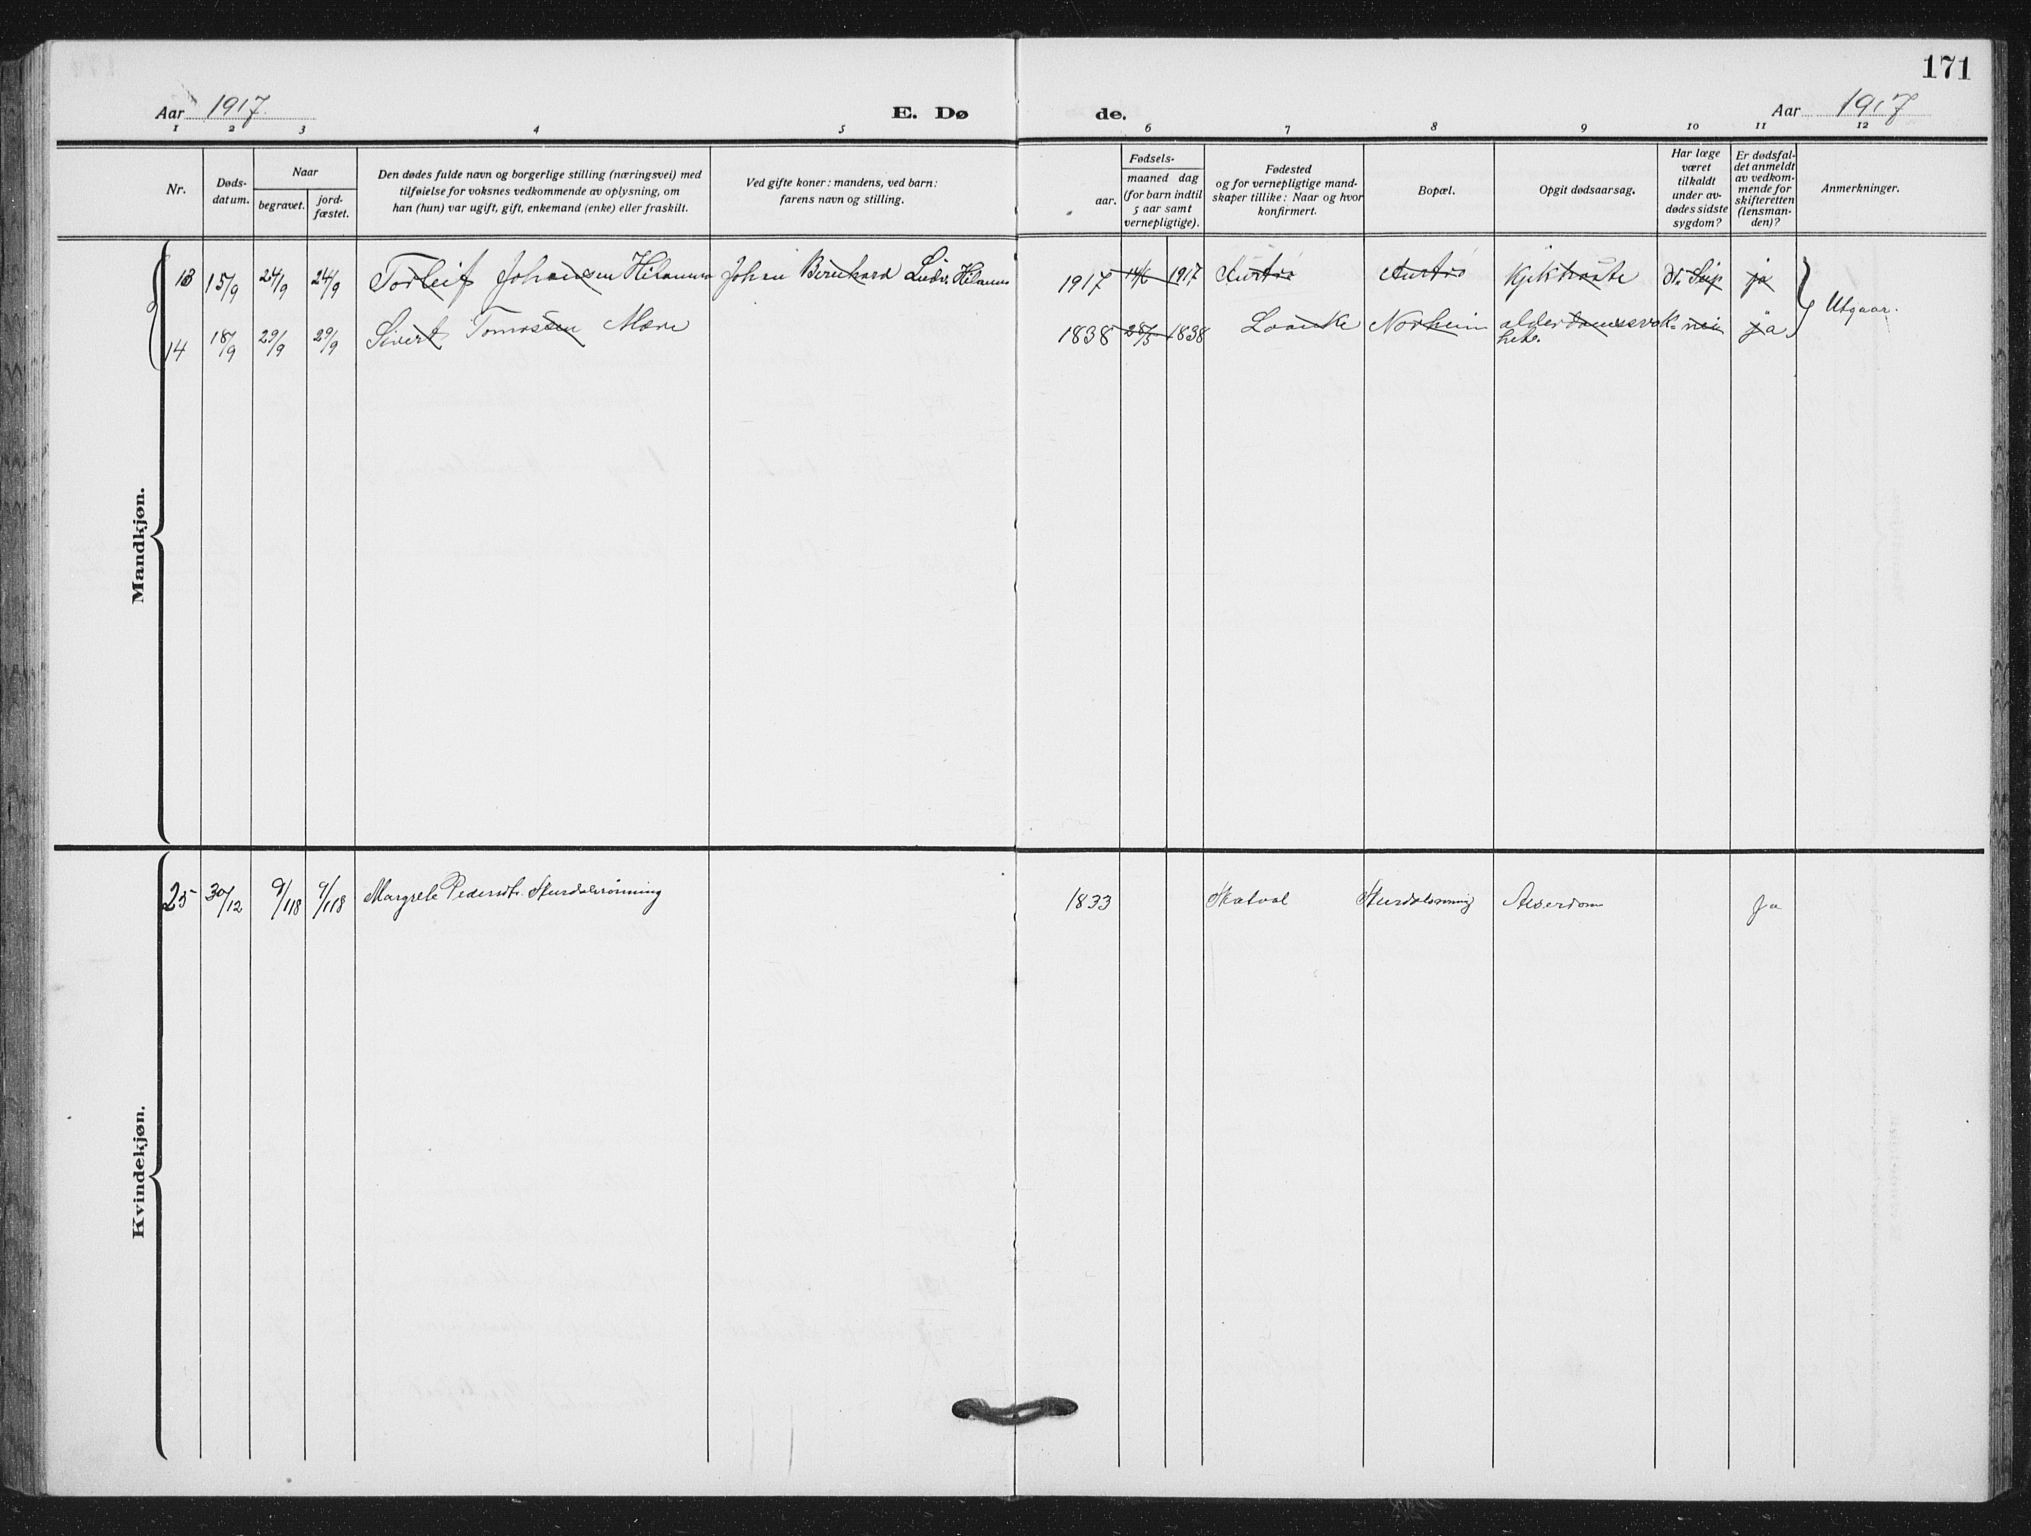 171
Aar 1917. E. Dø de. Aar 1917
1 2 3 4 5 6 7 8 9 10 11 12
Nr.
Døds-
datum.
Naar
begravet.
jord-
fæstet.
Den dødes fulde navn og borgerlige stilling (næringsvei) med
tilføielse for voksnes vedkommende av oplysning, om
han (hun) var ugift, gift, enkemand (enke) eller fraskilt.
Ved gifte koner: mandens, ved barn:
farens navn og stilling.
aar.
Fødsels-
maaned dag
(for barn indtil
5 aar samt
vernepligtige).
Fødested
og for vernepligtige mand-
skaper tillike: Naar og hvor
konfirmert.
Bopæl.
Opgit dødsaarsag.
Har læge
været
tilkaldt
under av-
dødes sidste
sygdom?
Er dødsfal-
det anmeldt
av vedkom-
mende for
skifteretten
(lensman-
den)?
Anmerkninger.
Mandkjøn.
13 15/9 24/9 24/9 Torleif Johansen Johan Bernhard Ludv. 1917 14/6 1917 Kjikhoste ja
14 18/9 29/9 29/9 Sivert Tomassen Mære 1838 1838 Norheim alderdomssvak- nei ja
hete.
Utgaar.
Kvindekjøn.
25 30/12 9/1 18 9/1 18 Margrete Pedersdtr. 1833 Skatval Alderdom Ja